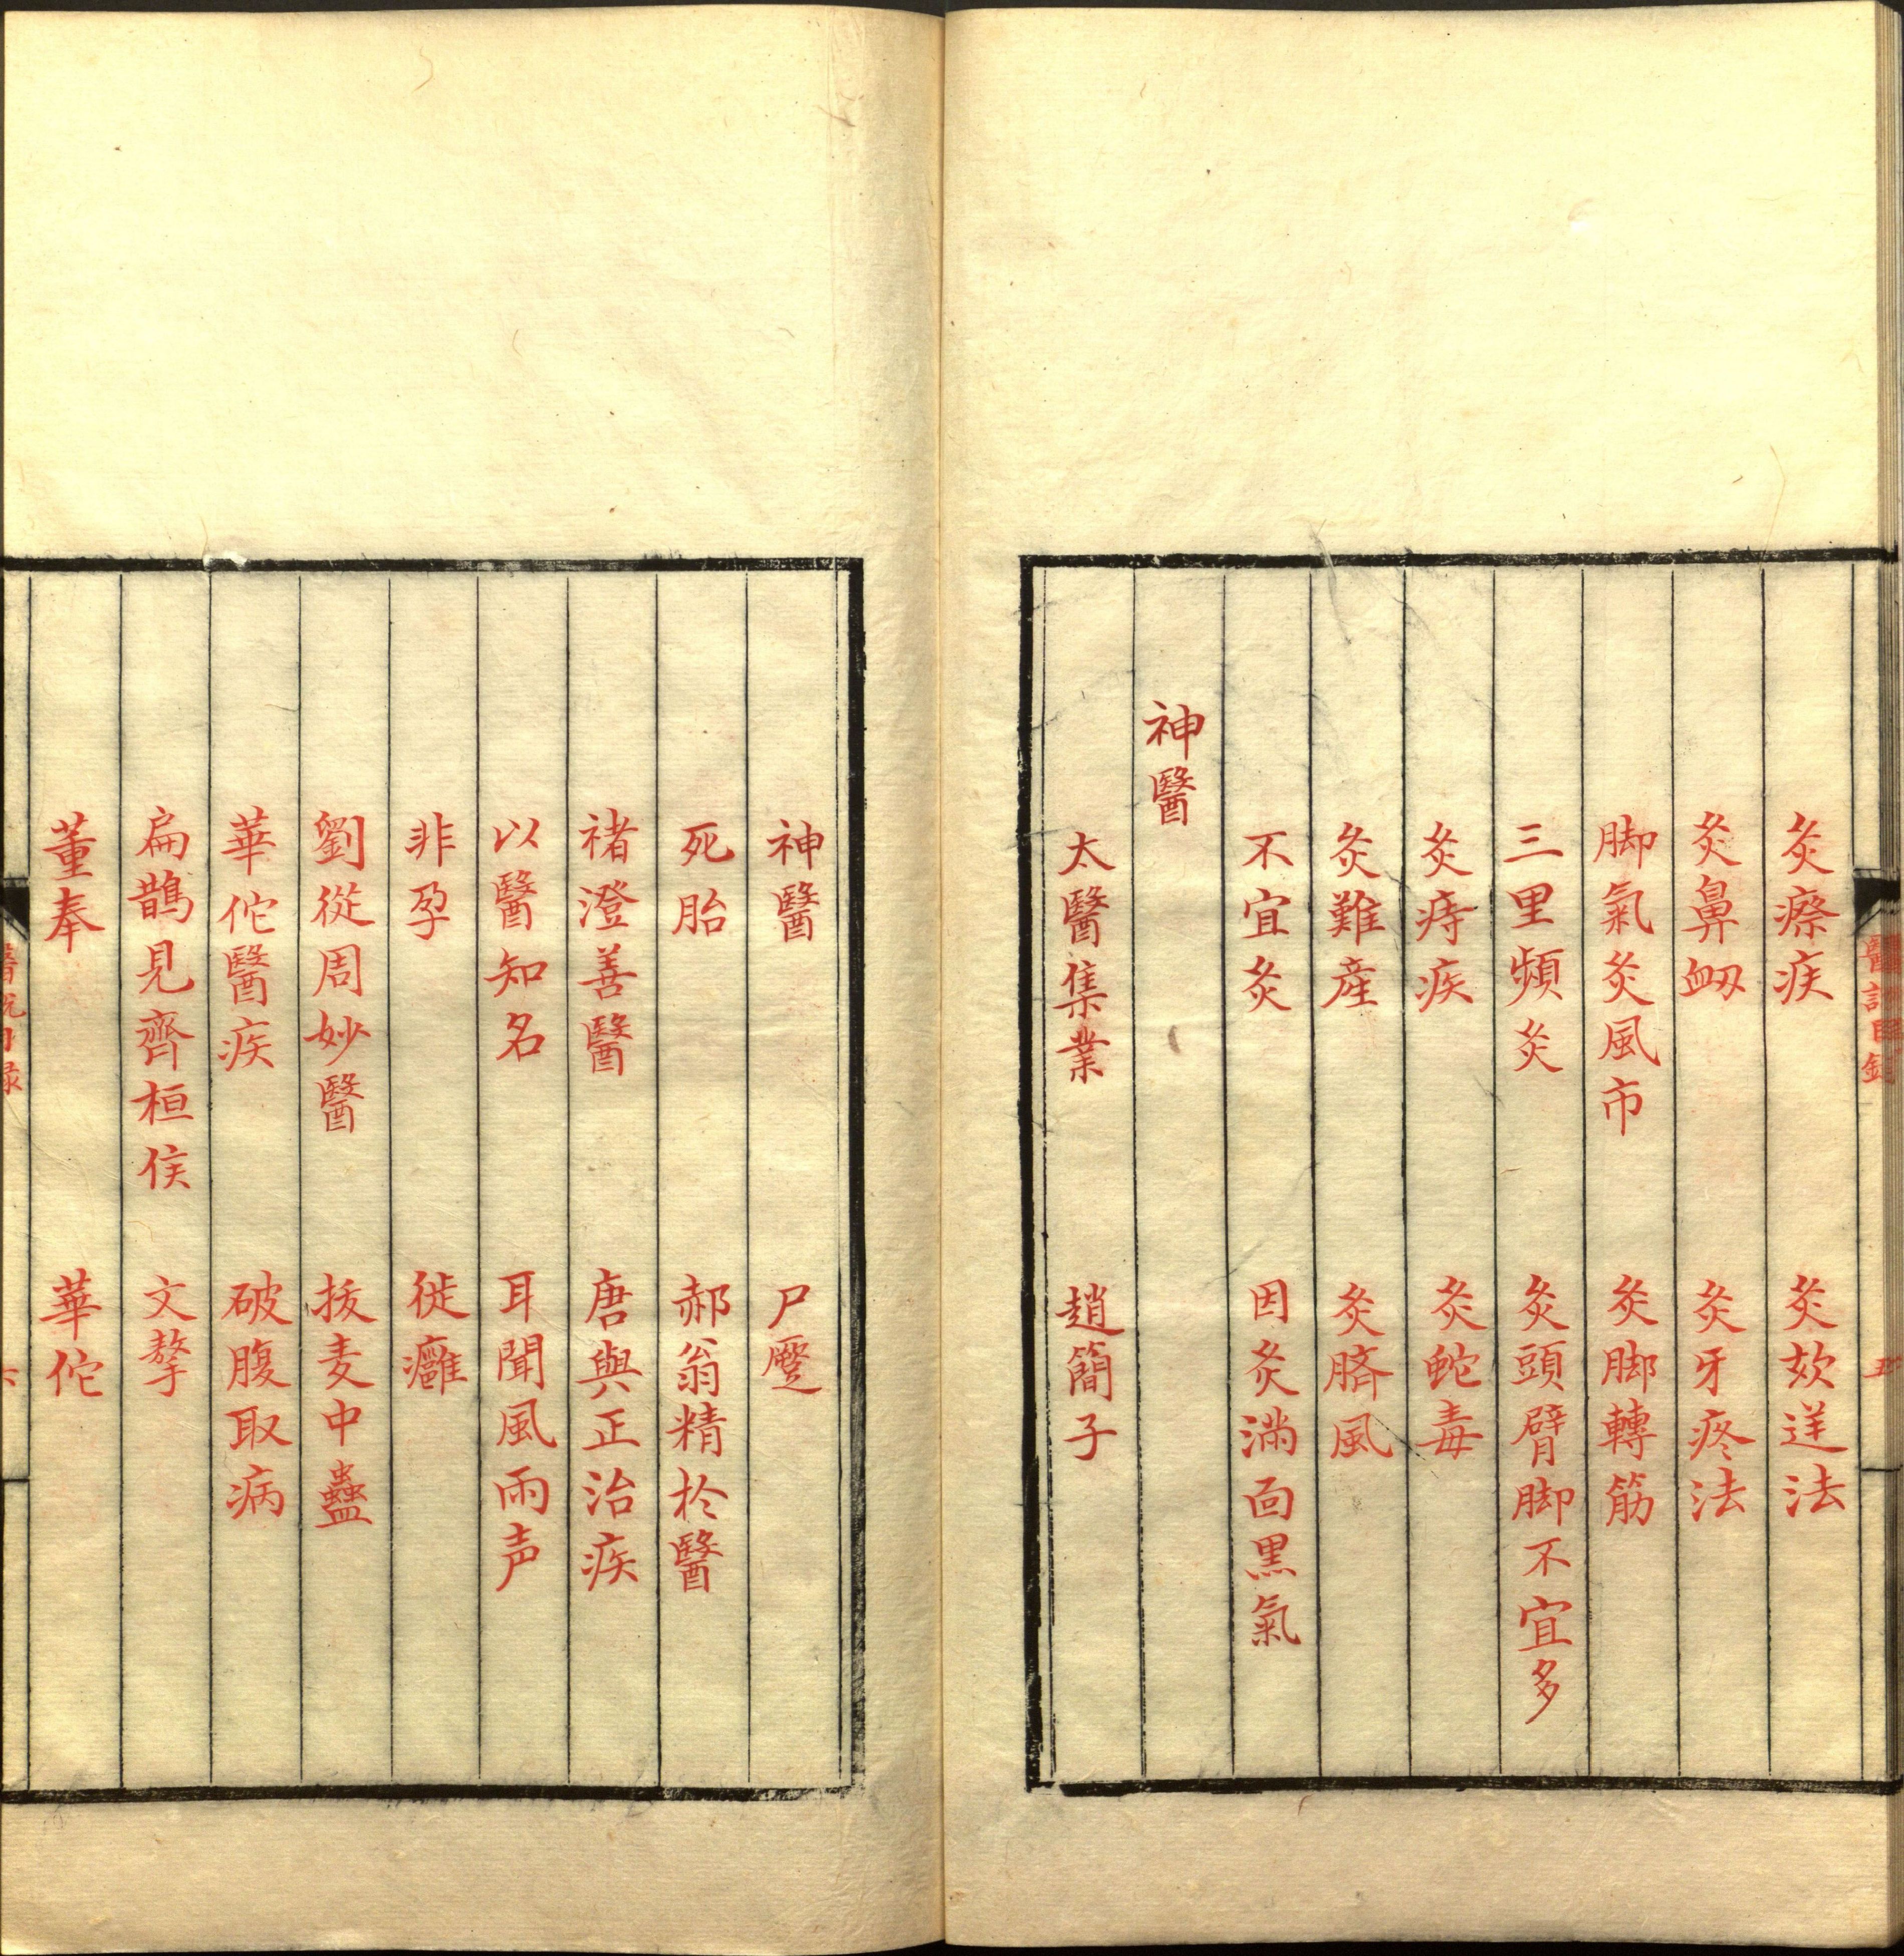 灸瘵疾 灸欬逆法
灸鼻衂 灸牙疼法
脚氣灸風市 灸脚轉筋
三里頻灸 灸頭臂脚不宜多
灸痔疾 灸蛇毒
灸難産 灸臍風
不宜灸 因灸滿面黑氣
神醫
太醫集業 趙簡子
神醫 尸蹷
死胎 郝翁精扵醫
禇澄善醫 唐與正治疾
以醫知名 耳聞風雨声
非孕 徙癰
劉從周妙醫 拔麦中蠱
華佗醫疾 破腹取病
扁鵲見齊桓侯 文摯
董奉 華佗
醫說目錄
六